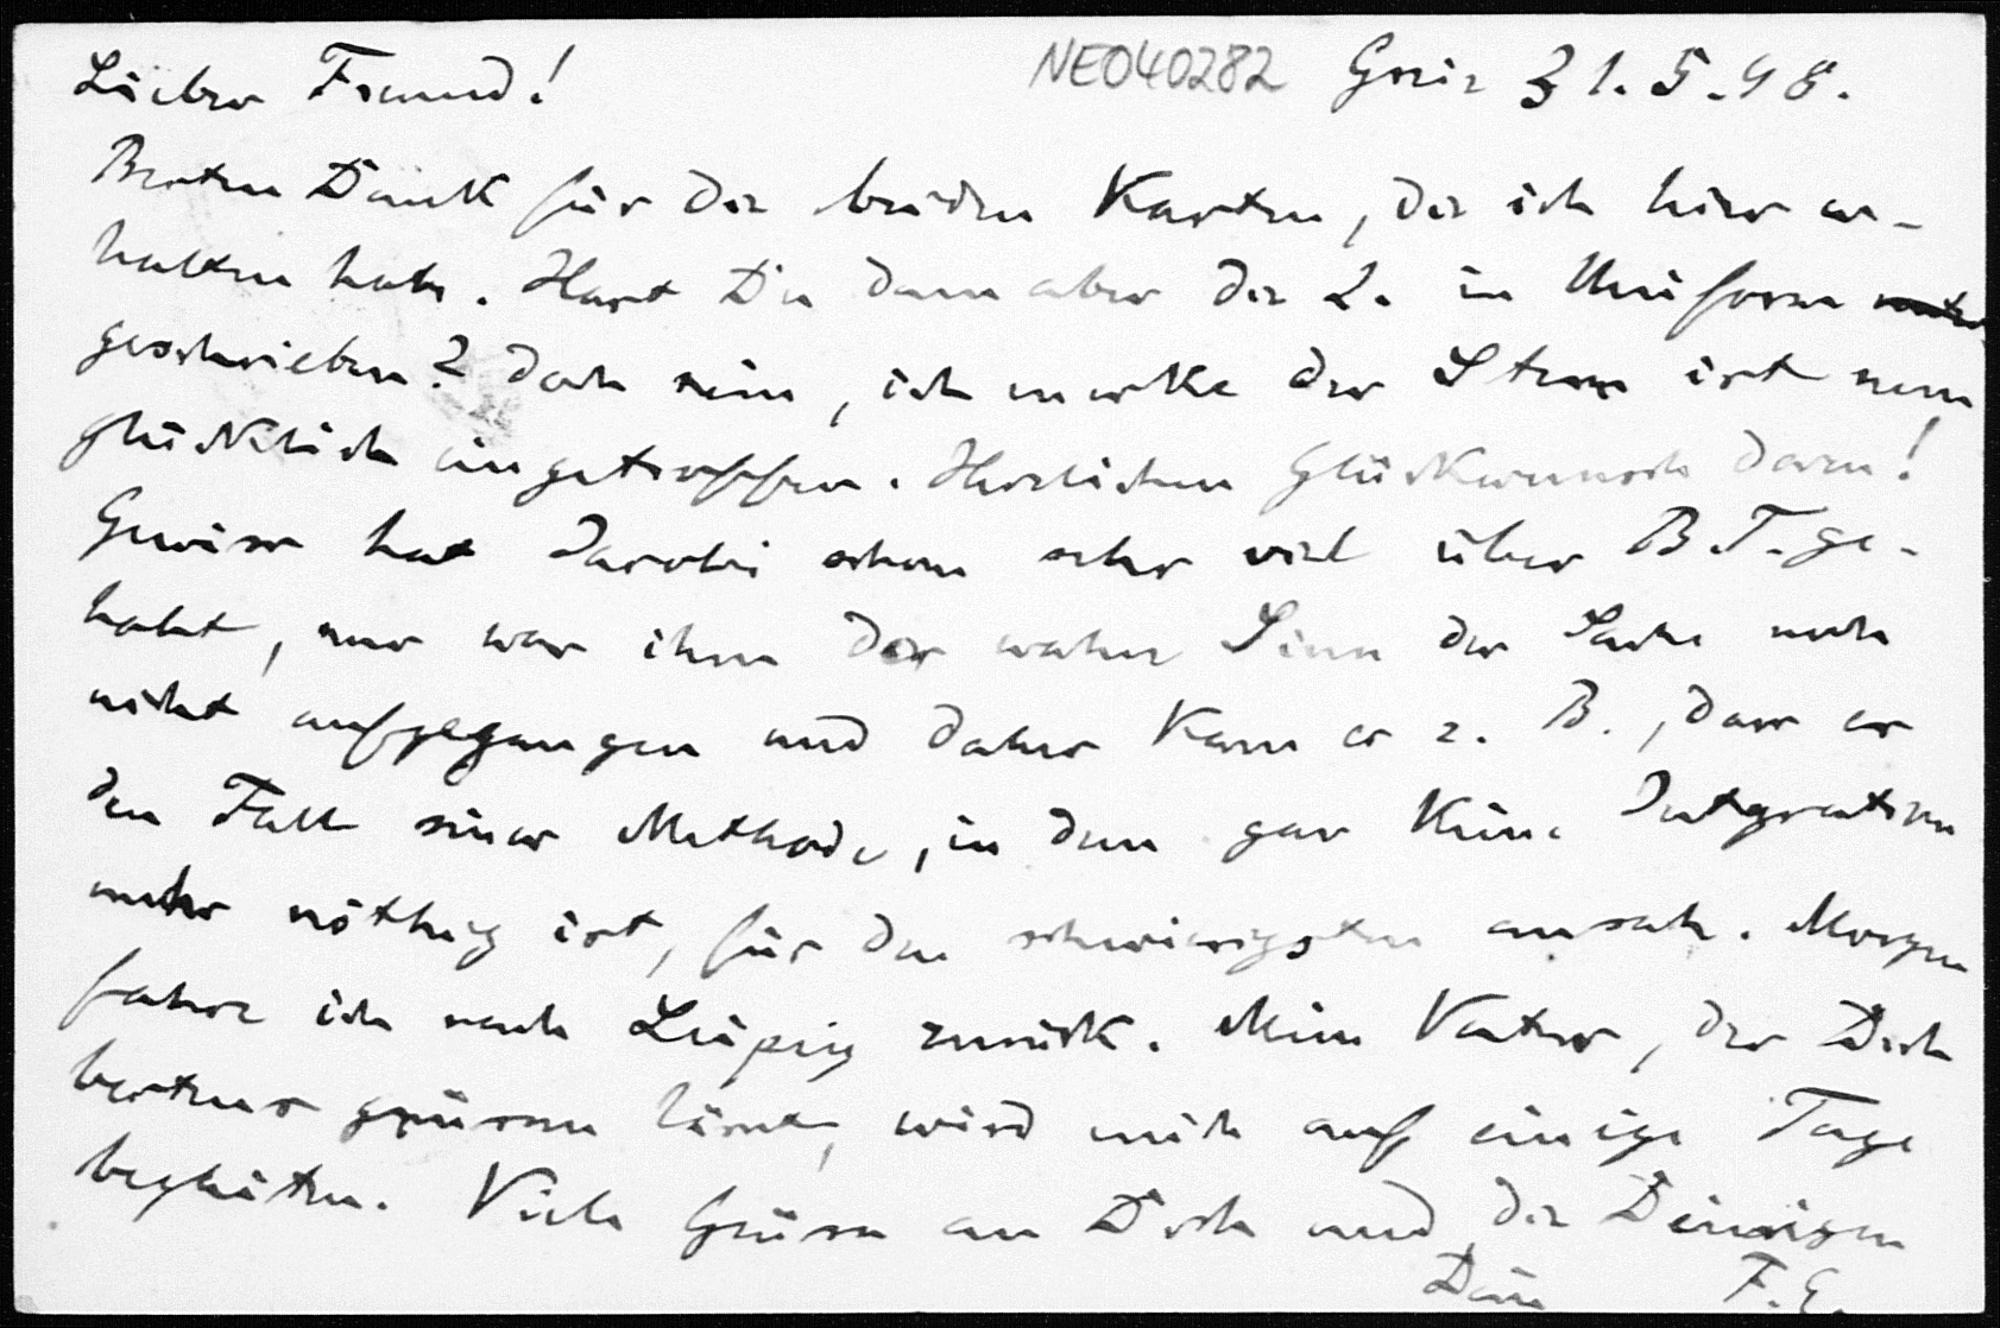 Lieber Freund! NE040282 Greiz 31.5.98.
Besten Dank für die beiden Karten, die ich hier er-
halten habe. Hast Du denn aber die 2. in Uniform
geschrieben? Doch nein, ich merke der Stern ist nun
glücklich eingetroffen. Herzlichen Glückwunsch dazu!
Gewiss hat Jacobi schon sehr viel über B.T. ge-
habt, nur war ihm der wahre Sinn der Sache noch
nicht aufgegangen und daher kam es z. B., dass er
den Fall seiner Methode, in dem gar keine Integration
mehr nöthig ist, für den schwierigsten ansah. Morgen
fahre ich nach Leipzig zurück. Mein Vater, der Dich
bestens grüssen lässt, wird mich auf einige Tage
begleiten. Viele Grüsse an Dich und die Deinigen
Dein F.E.